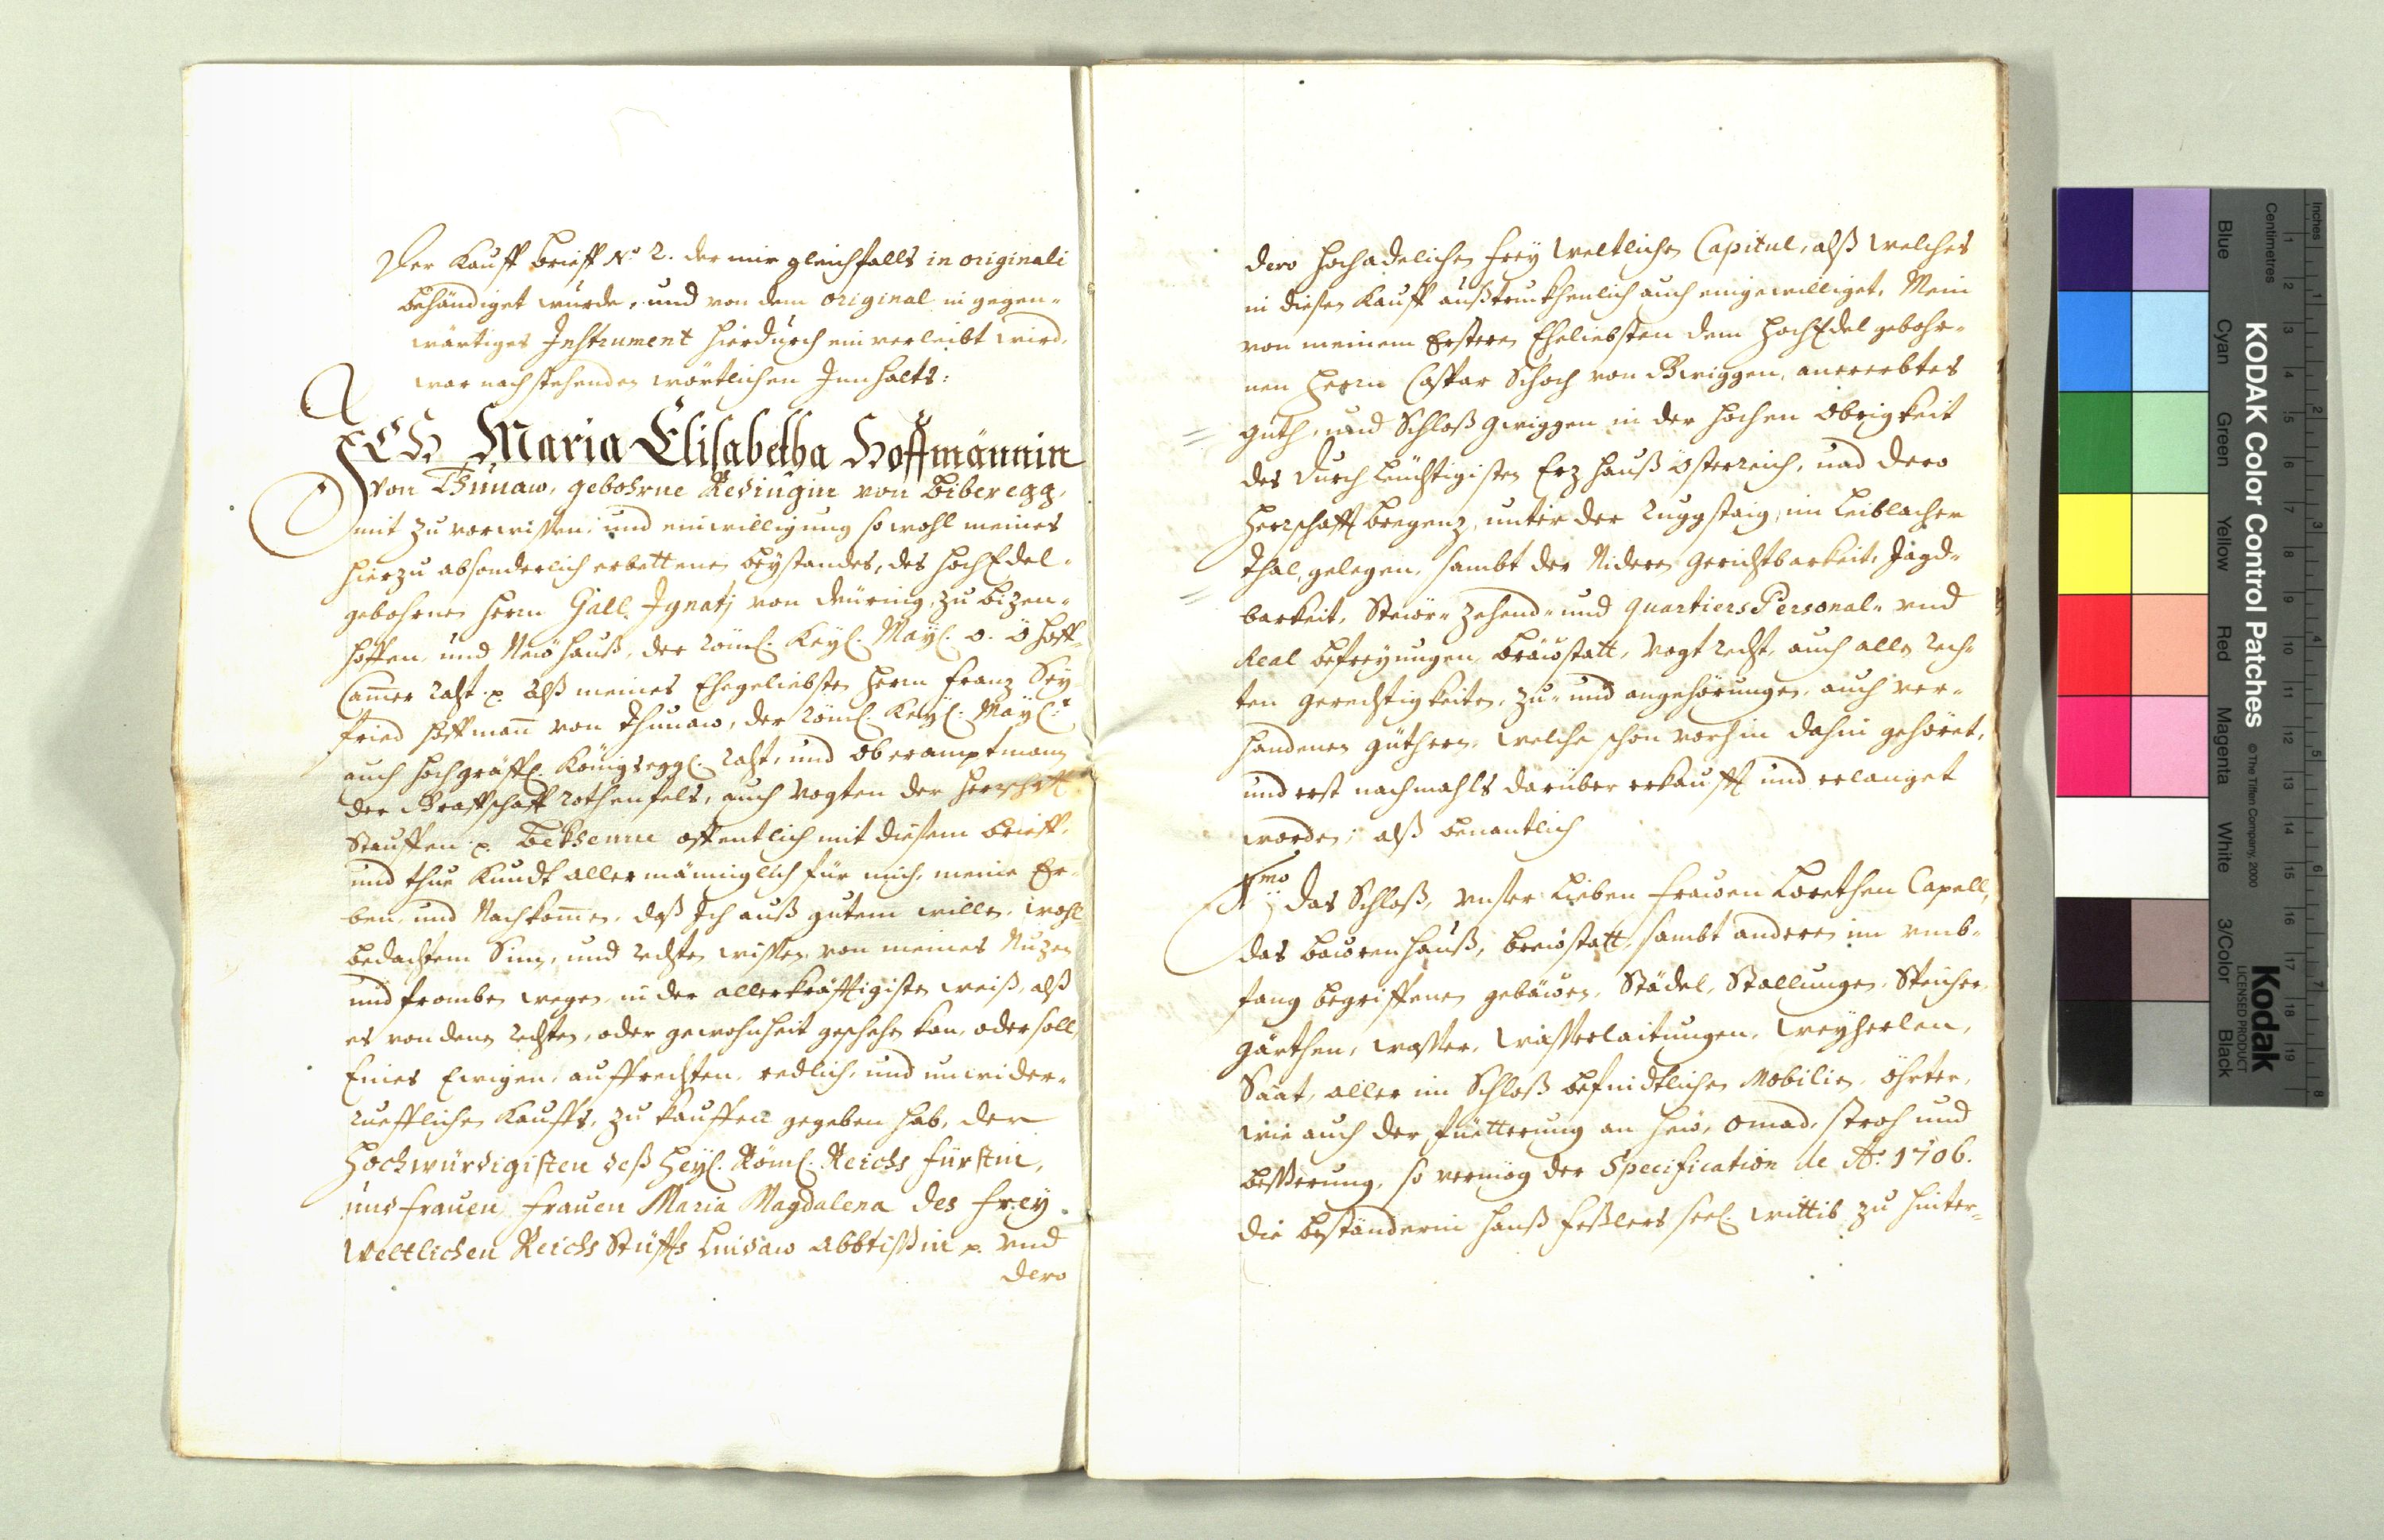 Der Kauff brieff No 2. der mir gleichfalls in originali
behändiget wurde, und von dem original in gegen-
wärtiges Instrument hierdurch ein verleibt wird,
war nachstehenden wörtlichen Innhalts:
ICH Maria Elisabetha Hoffmännin
von Thunaw, gebohrne Redingin von Biberegg,
mit zu vorwissen, und einwilligung so wohl meines
hierzu absonderlich erbettenen beystandes, des HochEdel-
gebohrnen Herrn Gall Ignatj von Deüring, zu Bizen-
hoffen, und Neühauß, der Röml. Keyl. Mayl. O. Ö Hoff-
Camer Raht p. Alß meines Ehegeliebsten Herrn Franz Sey
fried Hoffman von Thunaw, der Röml. Keyl. Mayl.
auch Hochgräffl. Königseggl. Raht, und Oberamptmann
der Graffschafft Rothenfels, auch Vogten der Herrschafft
Stauffen p. Bekhenne offentlich mit diesem brieff,
und thue kundt allermänniglich für mich, meine Er-
ben, und Nachkomen, daß Ich auß gutem willen, wohl
bedachtem Sinn, und rechten wissen, von meines Nuzen
und fromben wegen, in der allerkräfftigisten weiß, alß
es von denen rechten, oder gewohnheit geschehen kan, oder soll,
Eines Ewigen, auffrechten, redlich, und unwider-
rueflichen Kauffs, zu kauffen gegeben hab, der
Hochwürdigisten deß Heyl. Röml. Reichs Fürstin,
und Frauen, Frauen Maria Magdalena des Frey-
Weltlichen Reichs Stüffts Lindaw Abbtißin p. und
dero
dero Hochadelichen frey Weltlichen Capitul, alß welches
in diesen Kauff außtrukhenlich auch eingewilliget, Mein
von meinem Ersteren Eheliebsten dem HochEdel gebohr-
nen Herrn Caspar Schoch von Gwiggen, anererbtes
Guth, und Schloß Gwiggen in der Hochen Obrigkeit
des Durchleuchtigisten Erzhauß Österreich, und dero
Herrschafft Bregenz, unter der Ruggstaig, im Leiblacher
Thal, gelegen, sambt der Nideren Gerichtbarkeit, Jagd-
barkeit, Steür- Zehend- und Quartiers Personal- und
Real befreyungen, bräüstatt, Vogt recht, auch allen rech-
ten Gerechtigkeiten, zu- und angehörungen, auch ver-
handenen Güthern, welche schon vorhin dahin gehöret,
und erst nachmahls darüber erkaufft und erlanget
worden; alß benantlich
1mo Das Schloß, unser Lieben Frawen Lorethen Capell,
das bauren hauß, breüstatt, sambt anderen im umb-
fang begriffenen gebäwen, Städel, Stallungen, Speicher,
Gärthen, Wasser, Wasserlaitungen, Weyherlen,
Saat, aller im Schloß befindtlichen Mobilien, öhrter,
wie auch der fuetterung an Heü, Omad, Stroh und
besserung, so vermög der Specification de Ao 1706.
die beständerin Hanß Feßlers seel. Wittib zu hinter-